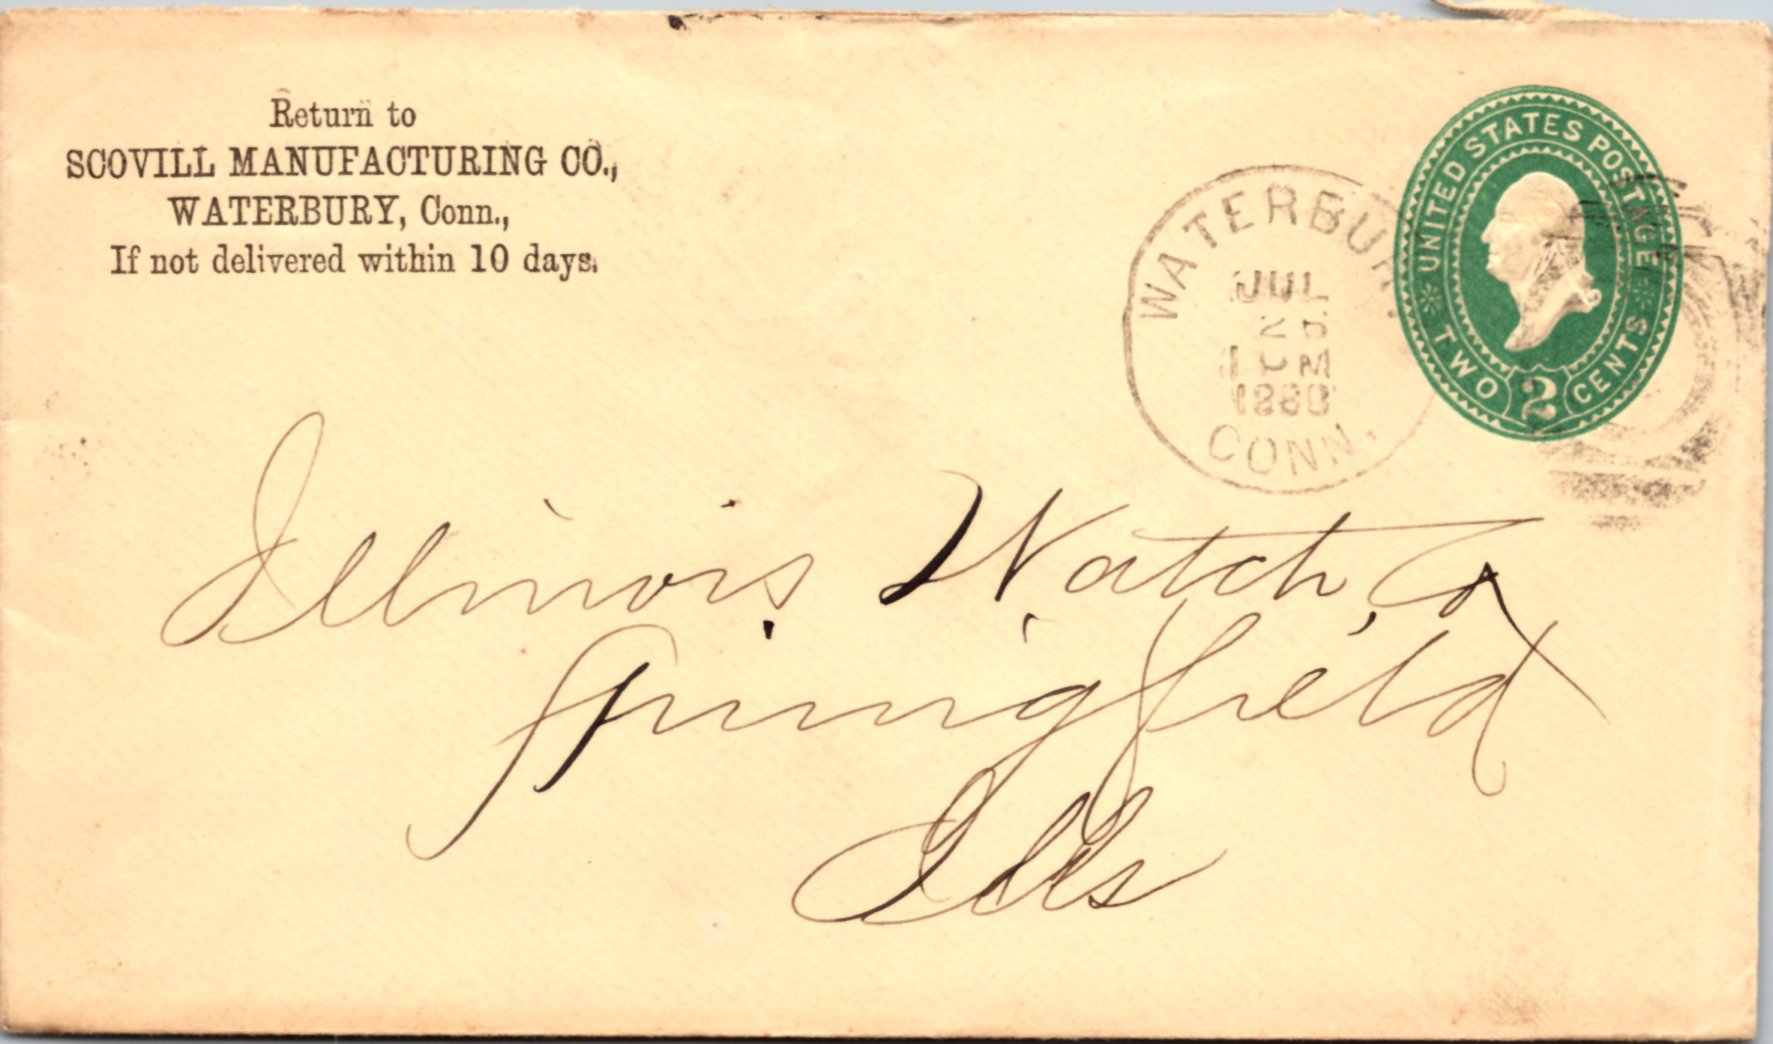 Return to
SCOVILL MANUFACTURING CO.,
WATERBURY, Conn.,
If not delivered within 10 days.
UNITED STATES POSTAGE
TWO 2 CENTS
WATERBURY,
JUL
PM
CONN.
Illinois Watch Co
Springfield
Ills